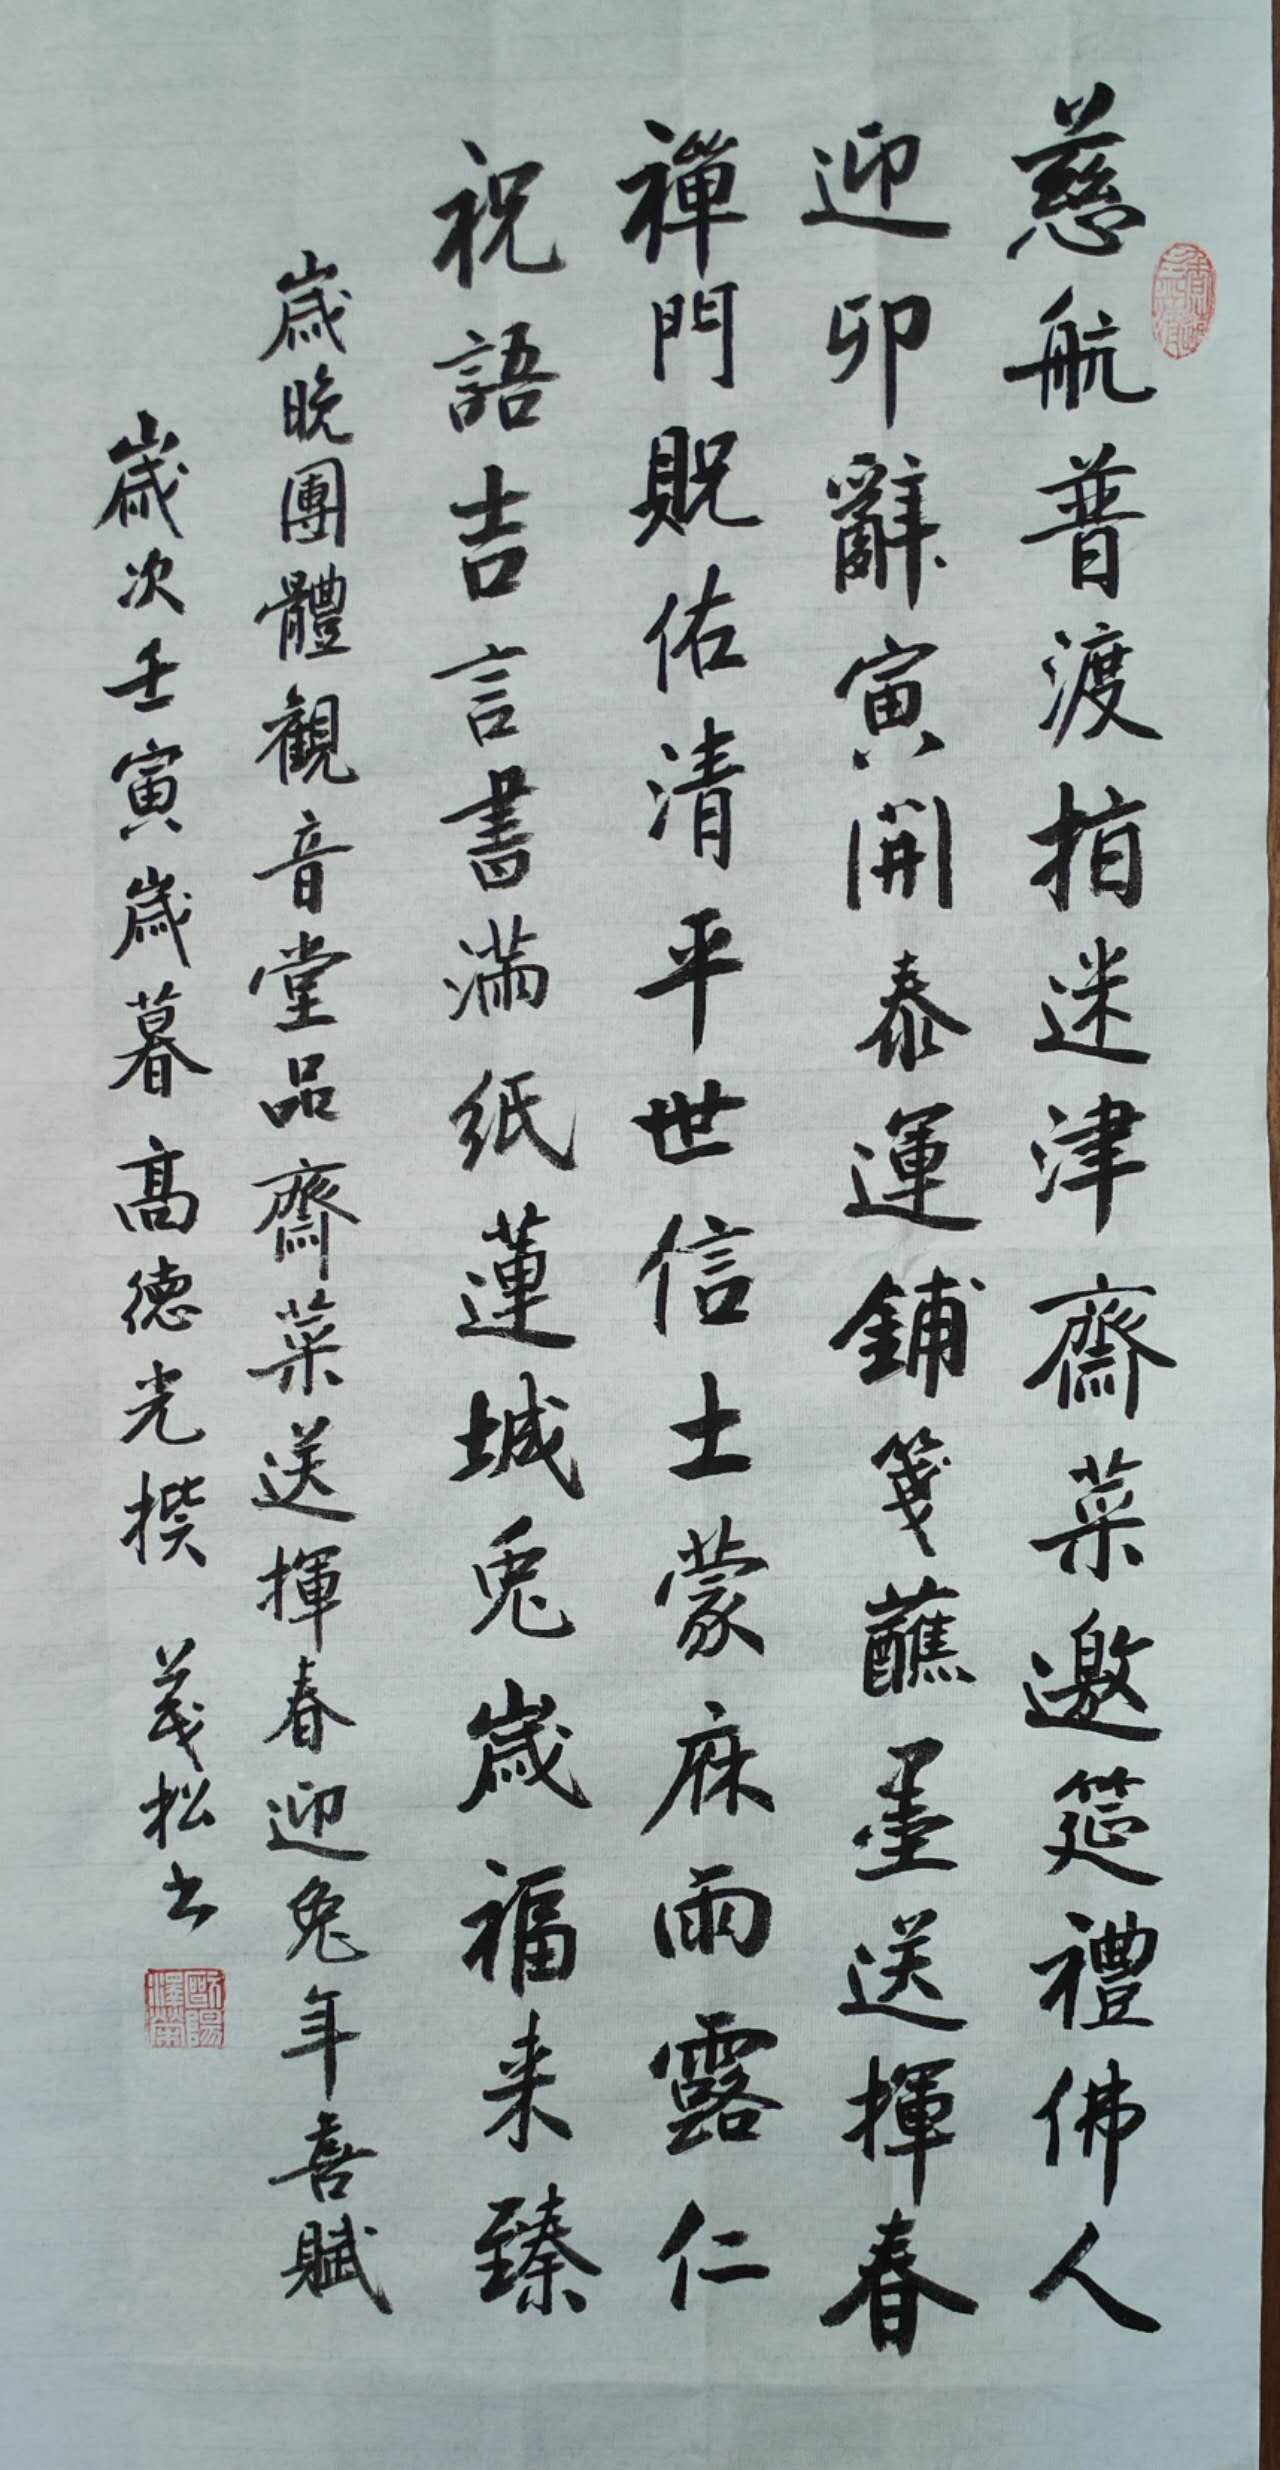 慈航普渡指迷津齋菜邀筵禮佛人
迎卯辭寅開泰運鋪箋蘸墨送揮春
禪門貺佑清平世信士蒙庥雨露仁
祝語吉言書滿紙蓮城兔歲福来臻
歲晚團體觀音堂品齋菜送揮春迎兔年喜賦
歲次壬寅歲暮高德光撰 義松书
歐陽澤榮